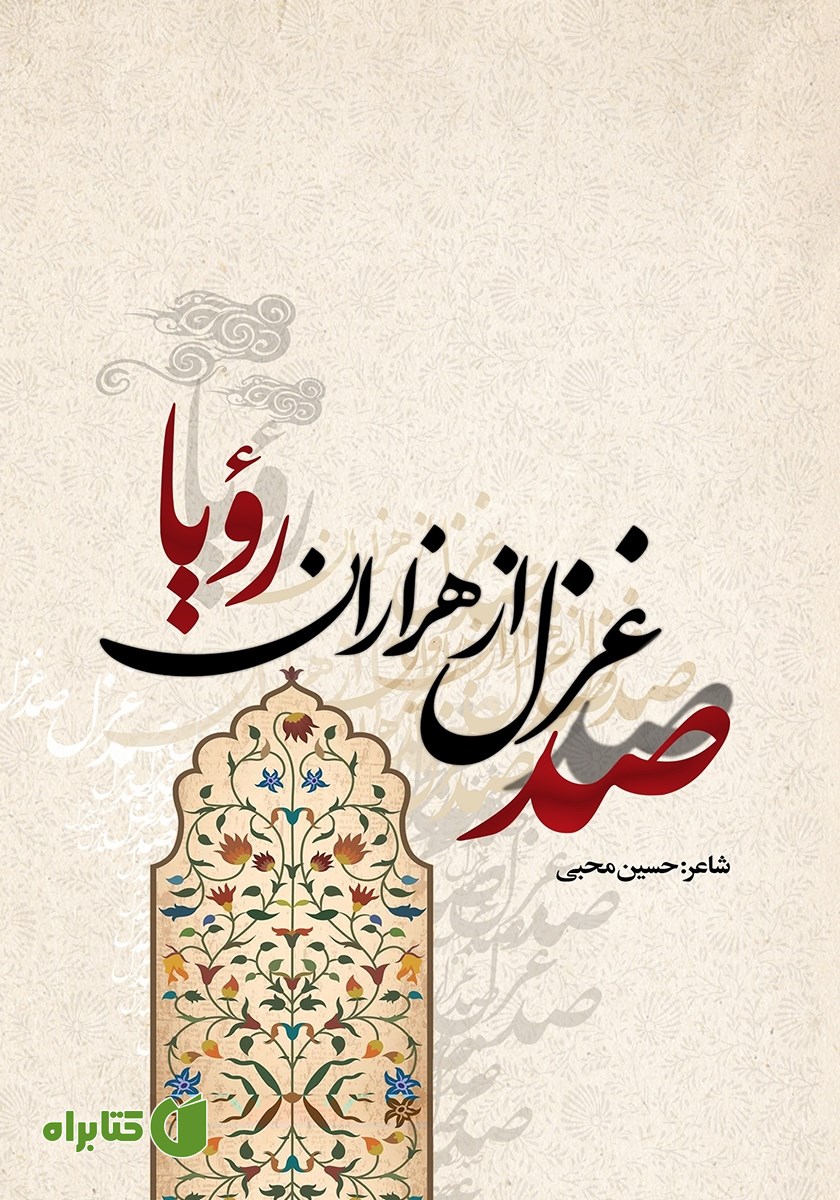 صد غزل از هزاران رؤیا
شاعر: حسین محبی
کتابراه